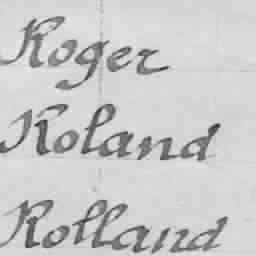 Roger
Roland
Rolland